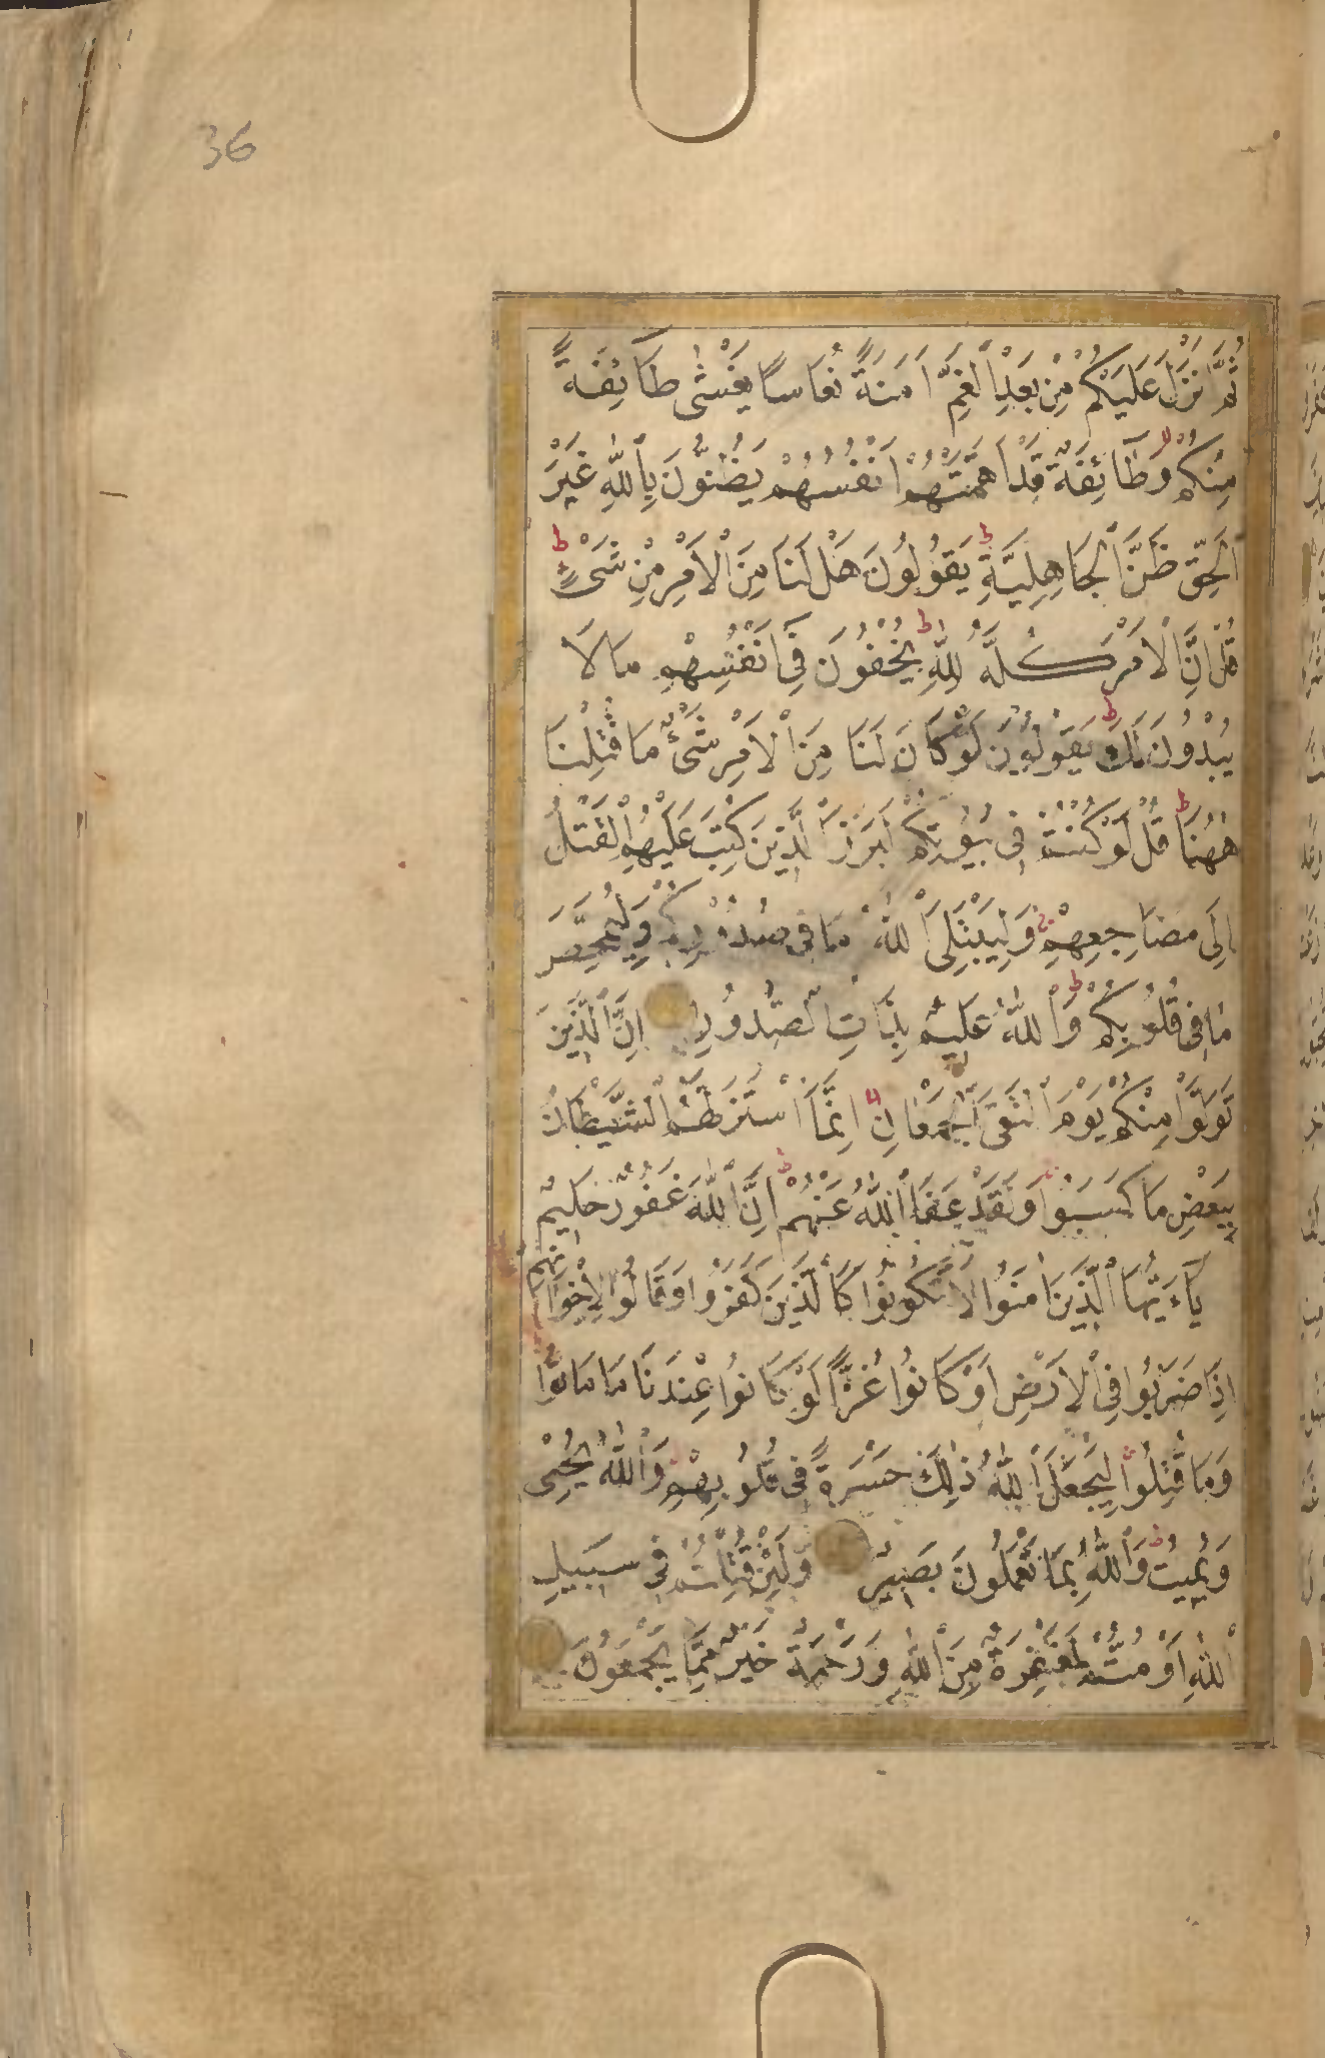 36
ثُمَّ نَزَلَ عَلَيْكُمْ مِنْ بَعْدِ ٱلْغَمِّ اَمَنَةً نُعَاسًا يَغْشٰى طَائِفَةً
مِنْكُمْ وَطَآئِفَةٌ قَدْ اَهَمَّتْهُمْ اَنْفُسُهُمْ يَظُنُّونَ بِٱللّٰهِ غَيْرَ
ٱلْحَقِّ ظَنَّ ٱلْجَاهِلِيَّةِ يَقُولُونَ هَلْ لَنَا مِنَ ٱلْاَمْرِ مِنْ شَىْءٍ
قُلْ اِنَّ ٱلْاَمْرَ كُلَّهُ لِلّٰهِ يُخْفُونَ فِىٓ اَنْفُسِهِمْ مَا لَا
يُبْدُونَ لَكَ يَقُولُونَ لَوْ كَانَ لَنَا مِنَ ٱلْاَمْرِ شَىْءٌ مَا قُتِلْنَا
هٰهُنَا قُلْ لَوْ كُنْتُمْ فِى بُيُوتِكُمْ لَبَرَزَ ٱلَّذِينَ كُتِبَ عَلَيْهِمُ ٱلْقَتْلُ
اِلٰى مَضَاجِعِهِمْ وَلِيَبْتَلِىَ ٱللّٰهُ مَا فِى صُدُورِكُمْ وَلِيُمَحِّصَ
مَا فِى قُلُوبِكُمْ وَٱللّٰهُ عَلِيمٌ بِذَاتِ ٱلصُّدُورِ اِنَّ ٱلَّذِينَ
تَوَلَّوْا مِنْكُمْ يَوْمَ ٱلْتَقَى ٱلْجَمْعَانِ اِنَّمَا ٱسْتَزَلَّهُمُ ٱلشَّيْطَانُ
بِبَعْضِ مَا كَسَبُوا وَلَقَدْ عَفَا ٱللّٰهُ عَنْهُمْ اِنَّ ٱللّٰهَ غَفُورٌ حَلِيمٌ
يَآءَيُّهَا ٱلَّذِينَ اٰمَنُوا لَا تَكُونُوا كَٱلَّذِينَ كَفَرُوا وَقَالُوا لِاِخْوَانِهِمْ
اِذَا ضَرَبُوا فِى ٱلْاَرْضِ اَوْ كَانُوا غُزًّا لَوْ كَانُوا عِنْدَنَا مَا مَاتُوا
وَمَا قُتِلُوا لِيَجْعَلَ ٱللّٰهُ ذٰلِكَ حَسْرَةً فِى قُلُوبِهِمْ وَٱللّٰهُ يُحْيِى
وَيُمِيتُ وَٱللّٰهُ بِمَا تَعْمَلُونَ بَصِيرٌ وَلَئِنْ قُتِلْتُمْ فِى سَبِيلِ
ٱللّٰهِ اَوْ مُتُّمْ لَمَغْفِرَةٌ مِنَ ٱللّٰهِ وَرَحْمَةٌ خَيْرٌ مِمَّا يَجْمَعُونَ